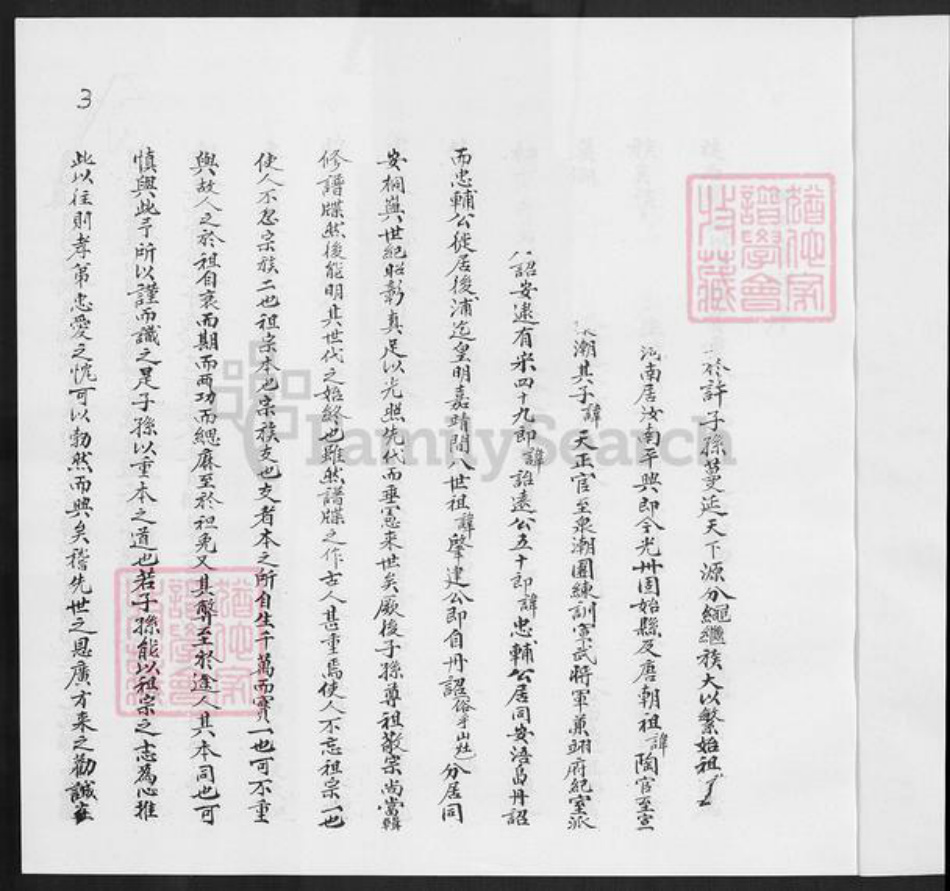 於許子孫蔓延天下源分繩繼族大以繁始祖
河南居汝南平興即今光州固始縣及唐朝祖諱陶官至宣
潮其子諱天正官至泉潮團練訓軍武將軍兼翊府紀室派
詔安遠有宋四十九郎諱誰遠公五十郎諱忠輔公居同安浯島丹詔
而忠輔公徙居後浦迄皇明嘉靖間八世祖諱肇建公即自丹詔俗乎山灶分居同
安桐與世紀昭彰真足以光照先代而垂憲來世矣厥後子孫尊祖敬宗尚當輯
修譜牒然後能明其世代之始終也雖然譜牒之作古人甚重焉使人不忘祖宗一也
使人不忽宗族二也祖宗本也宗族支也支者本之所自生千萬而實一也可不重
與故人之於祖自衰而期而兩功而緦麻至於袒免又其弊至於途人其本同也可
慎與此予所以謹而識之是子孫以重本之道也若子孫能以祖宗之志為心推
此以往則孝弟忠愛之忱可以勃然而興矣稽先世之恩廣方來之勸誡在
3
譜學會
收藏
FamilySearch